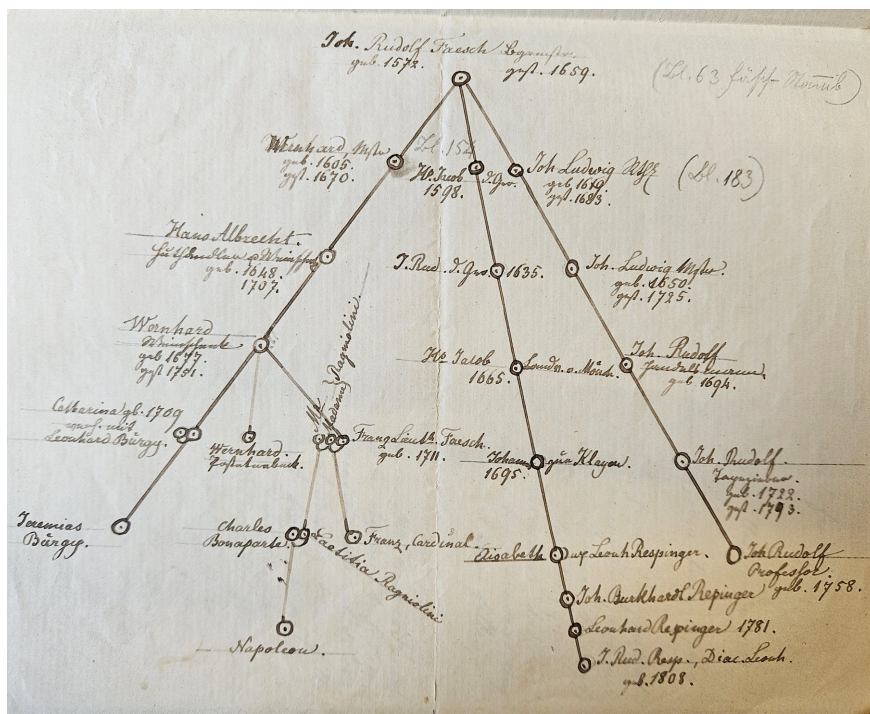 Joh. Rudolf Faesch
geb. 1572. gest. 1659.
(Bl. 63 fäsch-
Wernhard, Mstr
geb. 1605.
gest. 1670.
Bl. 154
Hs. Jacob d. Gr.
1598.
Joh. Ludwig
geb 1619
gest. 1683.
(Bl. 183)
Hans Albrecht.
geb. 1648.
1707.
J. Rud. d. Gr. 1635.
Joh. Ludwig Mstr.
geb. 1650.
gest. 1725.
Wernhard
Weinschenk
geb 1677
gest 1751.
Ma
Madame Ragniolini
Hs. Jacob
1665.
Joh. Rudolf
Handelsmann
geb 1694.
Catharina gb. 1709
verh. mit
Leonhard Bürgy.
Wernhard.
Franz Lieut. Faesch.
geb. 1711.
Johann
1695.
Joh. Rudolf
geb. 1722.
gest. 1793.
Jeremias
Bürgy.
Charles
Bonaparte.
Laetitia Ragniolini
Franz, Cardinal.
Elisabeth ux Leonh Respinger.
Joh Rudolf
Professor.
geb. 1758.
Joh. Burkhardt Repinger
Leonhard Respinger 1781.
Napoleon.
J. Rud. Resp., Diac. Leonh.
geb. 1808.